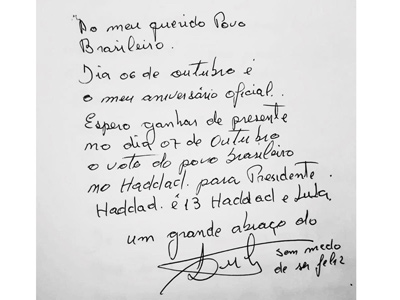 Ao meu querido Povo
Brasileiro.
Dia 06 de outubro é
o meu aniversário oficial.
Espero ganhar de presente
no dia 07 de Outubro
o voto do povo brasileiro
no Haddad. para Presidente.
Haddad. é 13 Haddad e Lula
um grande abraço do
Lula
sem medo
de ser feliz